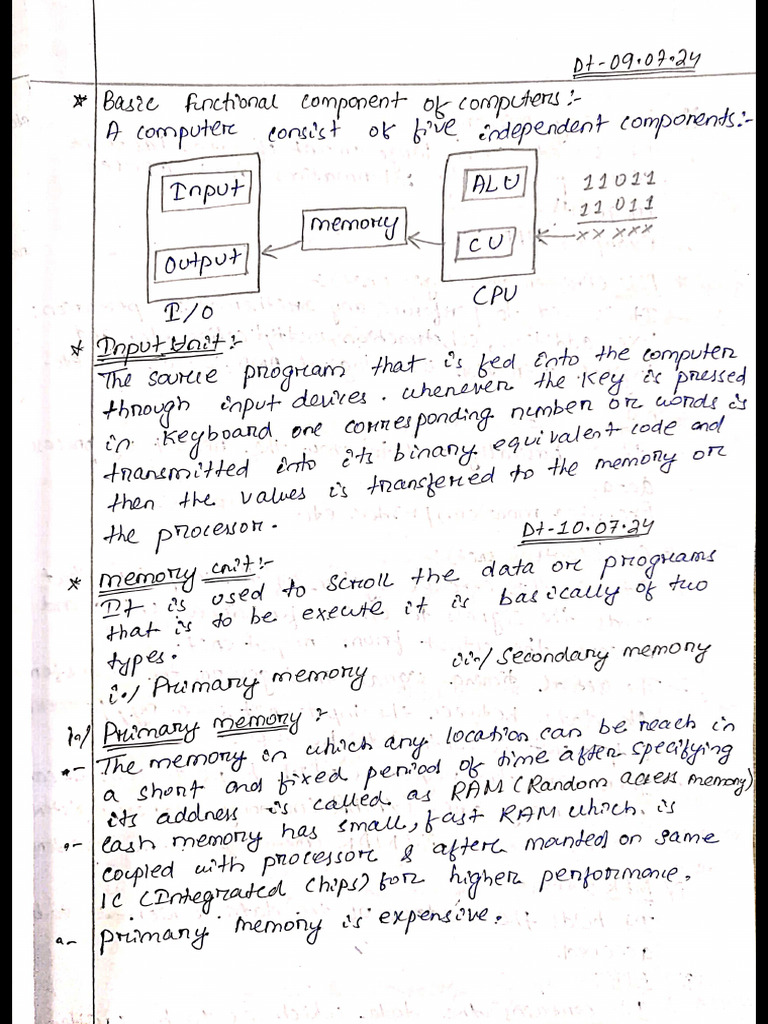 Dt-09.07.24
* Basic functional component of computers:-
A computer consist of five independent components:-
Input
Output
I/O
memory
ALU
CU
CPU
11011
11011
xx xxx
* Input Unit:-
The source program that is fed into the computer
through input devices. whenever the key is pressed
in keyboard one corresponding number or words is
transmitted into its binary equivalent code and
then the values is transferied to the memory or
the processor.
Dt-10.07.24
* memory unit:-
It is used to scroll the data or programs
that is to be execute it is basically of two
types.
i./ Primary memory
ii./ Secondary memory
Primary memory :-
The memory in which any location can be reach in
a short and fixed period of time after specifying
its address is called as RAM (Random access memory)
cash memory has small, fast RAM which is
coupled with processor & after manted on same
IC (Integrated Chips) for higher performance.
primary memory is expensive.